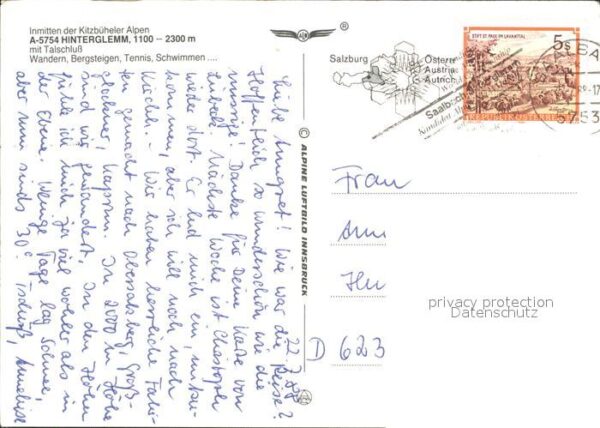 Inmitten der Kitzbüheler Alpen
A-5754 HINTERGLEMM, 1100 – 2300 m
mit Talschluß
Wandern, Bergsteigen, Tennis, Schwimmen ....
®
Salzburg
Österr
Austria
Autrich
Saalba
STIFT ST. PAUL IM LAVANTTAL
5s
REPUBLIK ÖSTERREICH
BA
-17
5753
© ALPINE LUFTBILD INNSBRUCK
22.7.88
Liebe Annegret! Wie war die Reise?
Hoffentlich so wunderschön wie die
Danke für Deine Karte von
Nächste Woche ist Christoph
wieder dort. Er lud mich ein, mitzu-
kommen, aber ich will noch nach
Wir haben herrliche Fahr-
ten gemacht nach Obersalzberg, Groß-
glockner, Kaprun. In 2000 m Höhe
sind wir gewandert. In den Höhen
fühle ich mich ja viel wohler als in
der Ebene. Wenige Tage lag Schnee,
aber nun sinds 30°C. Tschüß, Anneliese
Frau
D 623
privacy protection
Datenschutz